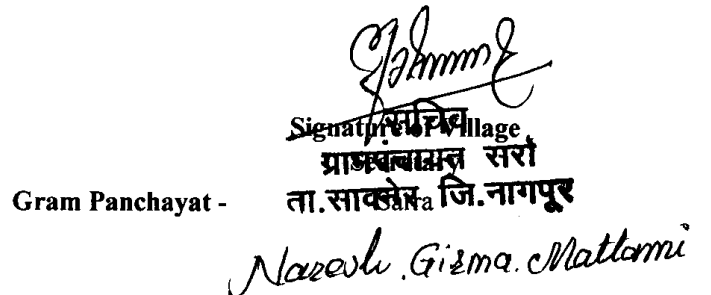 Signature of Village
सचिव
ग्रामपंचायत सर्रा
Gram Panchayat -
ता.सावनेर जि.नागपूर
Naresh. Girma. Mattami